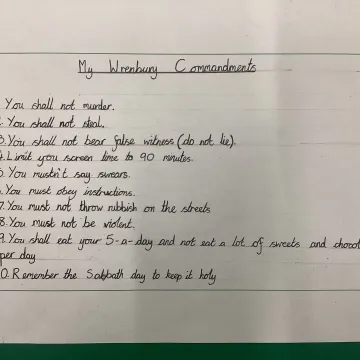 My Wrenbury Commandments
. You shall not murder.
. You shall not steal.
3. You shall not bear false witness (do not lie).
4. Limit you screen time to 90 minutes.
5. You mustn't say swears.
6. You must obey instructions.
7. You must not throw rubbish on the streets
8. You must not be violent.
9. You shall eat your 5-a-day and not eat a lot of sweets and chocol
per day
0. Remember the Sabbath day to keep it holy